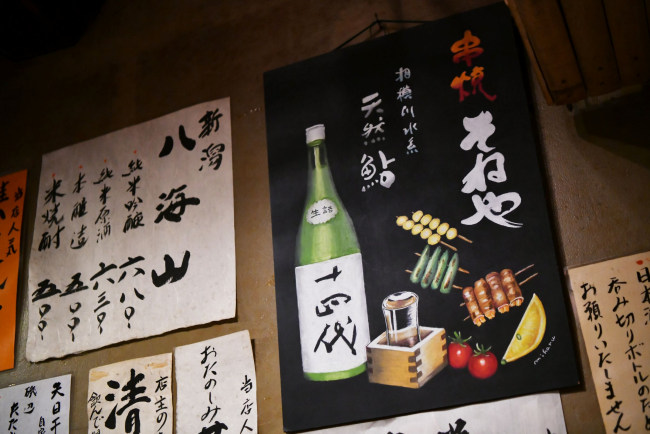 串焼
そねや
相模川水系
天然鮎
生詰
十四代
miharu
新潟
八海山
純米吟醸 六八〇
純米原酒 六三〇
本醸造 五〇〇
米焼酎 五〇〇
当店人気
当店人
おたのしみ
店主の
清
飲んで
天日干
呑み切りボトルのた
お預りいたしません